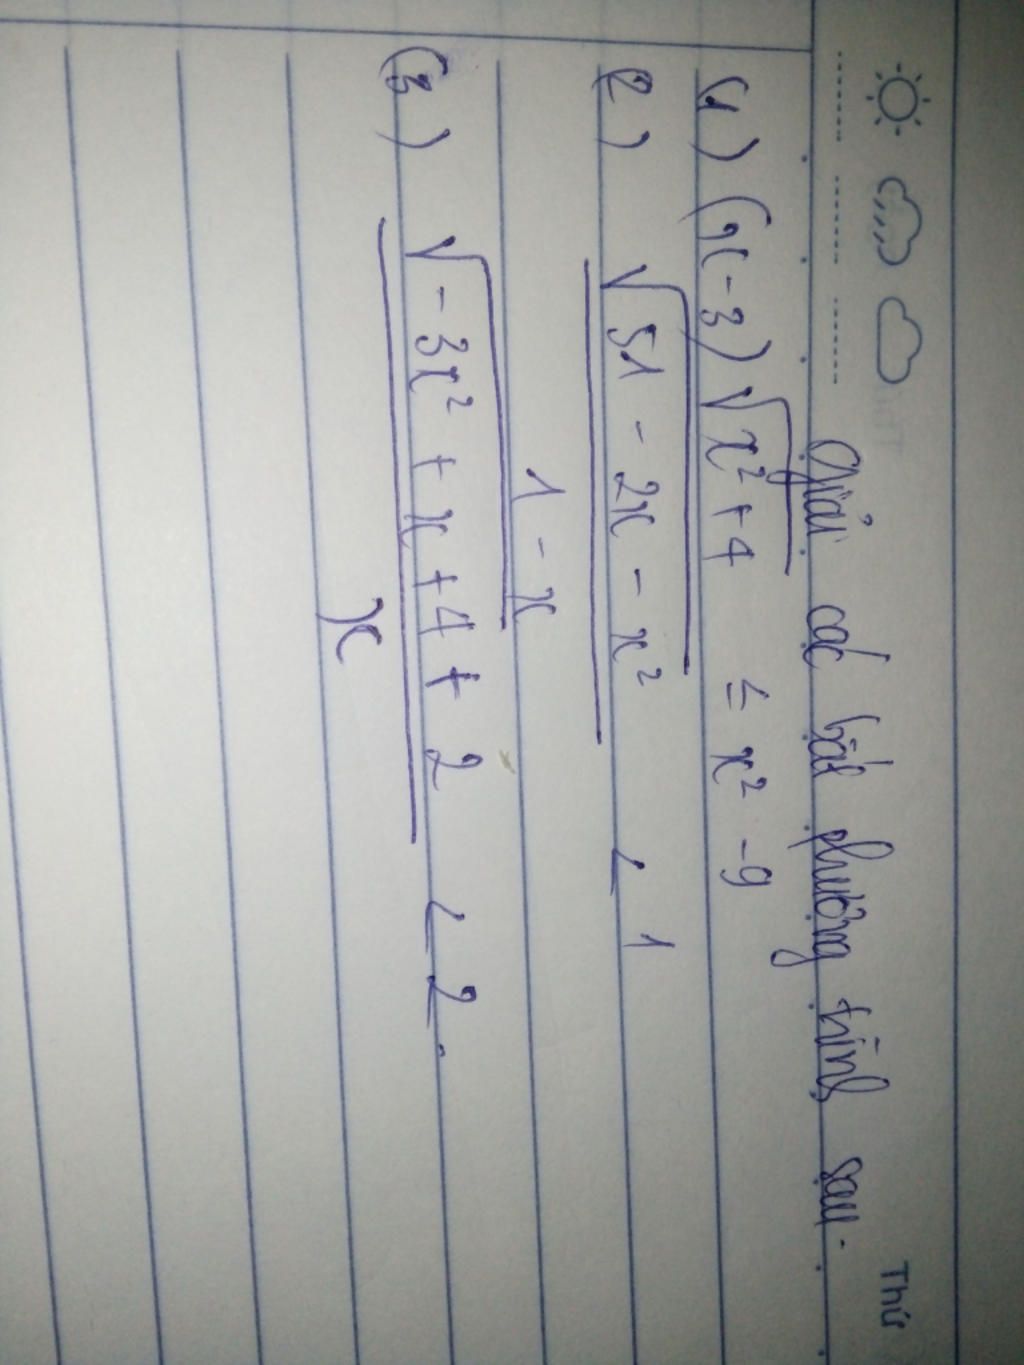 Thứ
Giải các bất phương trình sau.
(1) (x-3)√(x²+4) ≤ x² -9
(2) √(51 - 2x - x²) / (1 - x) < 1
(3) (√(-3x² + x + 4) + 2) / x < 2.